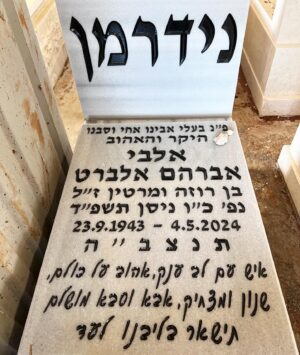 נידרמן
פ״נ בעלי אבינו אחי וסבנו
היקר והאהוב
אלבי
אברהם אלברט
בן רוזה ומרטין ז״ל
נפ׳ כ״ו ניסן תשפ״ד
23.9.1943 - 4.5.2024
ת נ צ ב ״ ה
איש עם לב ענק, אהוב על כולם,
שנון ומצחיק, אבא וסבא מושלם
תישאר בליבנו לעד